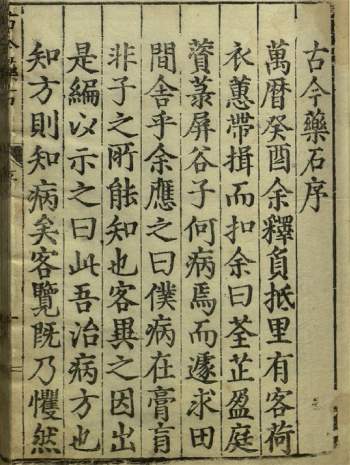 古今藥石序
萬曆癸酉余釋負抵里有客荷
衣蕙帶揖而扣余曰荃芷盈庭
薋菉屏谷子何病焉而遽求田
間舍乎余應之曰僕病在膏肓
非子之所能知也客異之因出
是編以示之曰此吾治病方也
知方則知病矣客覽既乃懼然